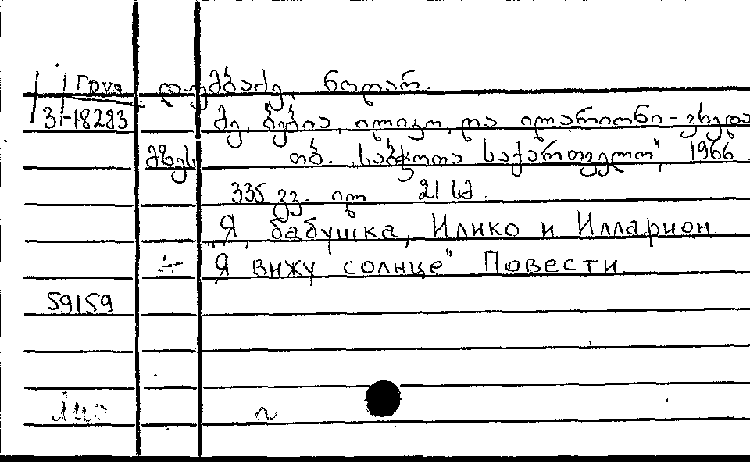 Груз დუმბაძე, ნოდარ.
31-18283 მე, ბებია, ილიკო და ილარიონი - ვხედავ
მზეს თბ. "საბჭოთა საქართველო", 1966
335 გვ. ილ 21 სმ.
"Я, бабушка, Илико и Илларион
"Я вижу солнце" Повести
59159